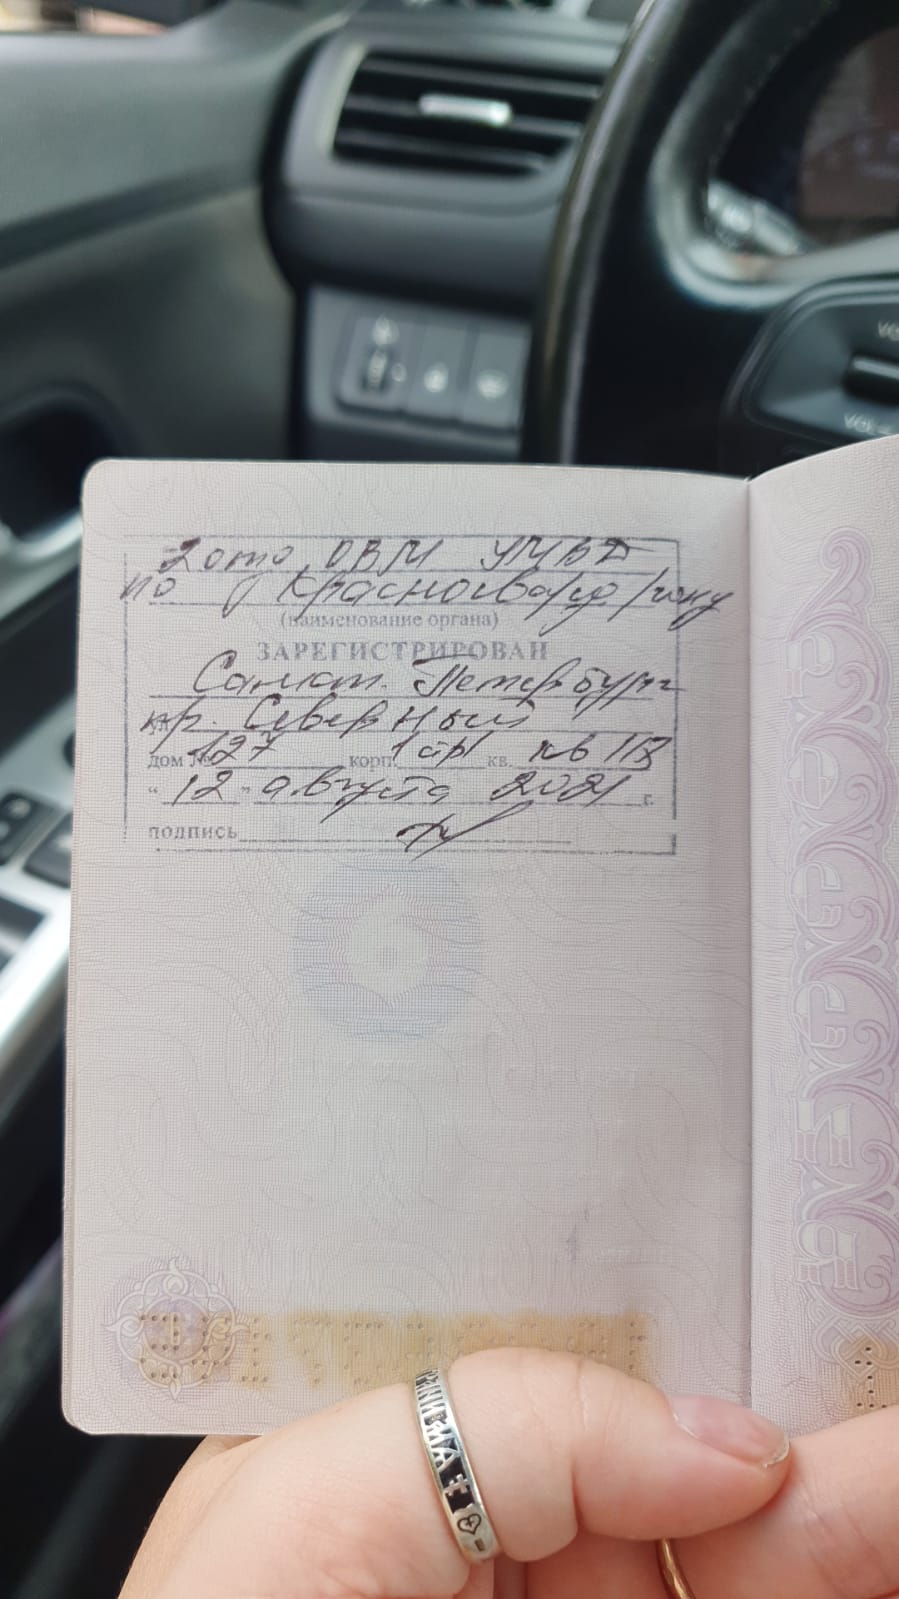 2 отд. ОВМ УМВД
по Красногвард р/йону
(наименование органа)
ЗАРЕГИСТРИРОВАН
Санкт-Петербург
пр. Северный
дом № 127 корп. 1 стр1 кв. кв 113
" 12 " августа 2021 г.
подпись
VO
VOL-